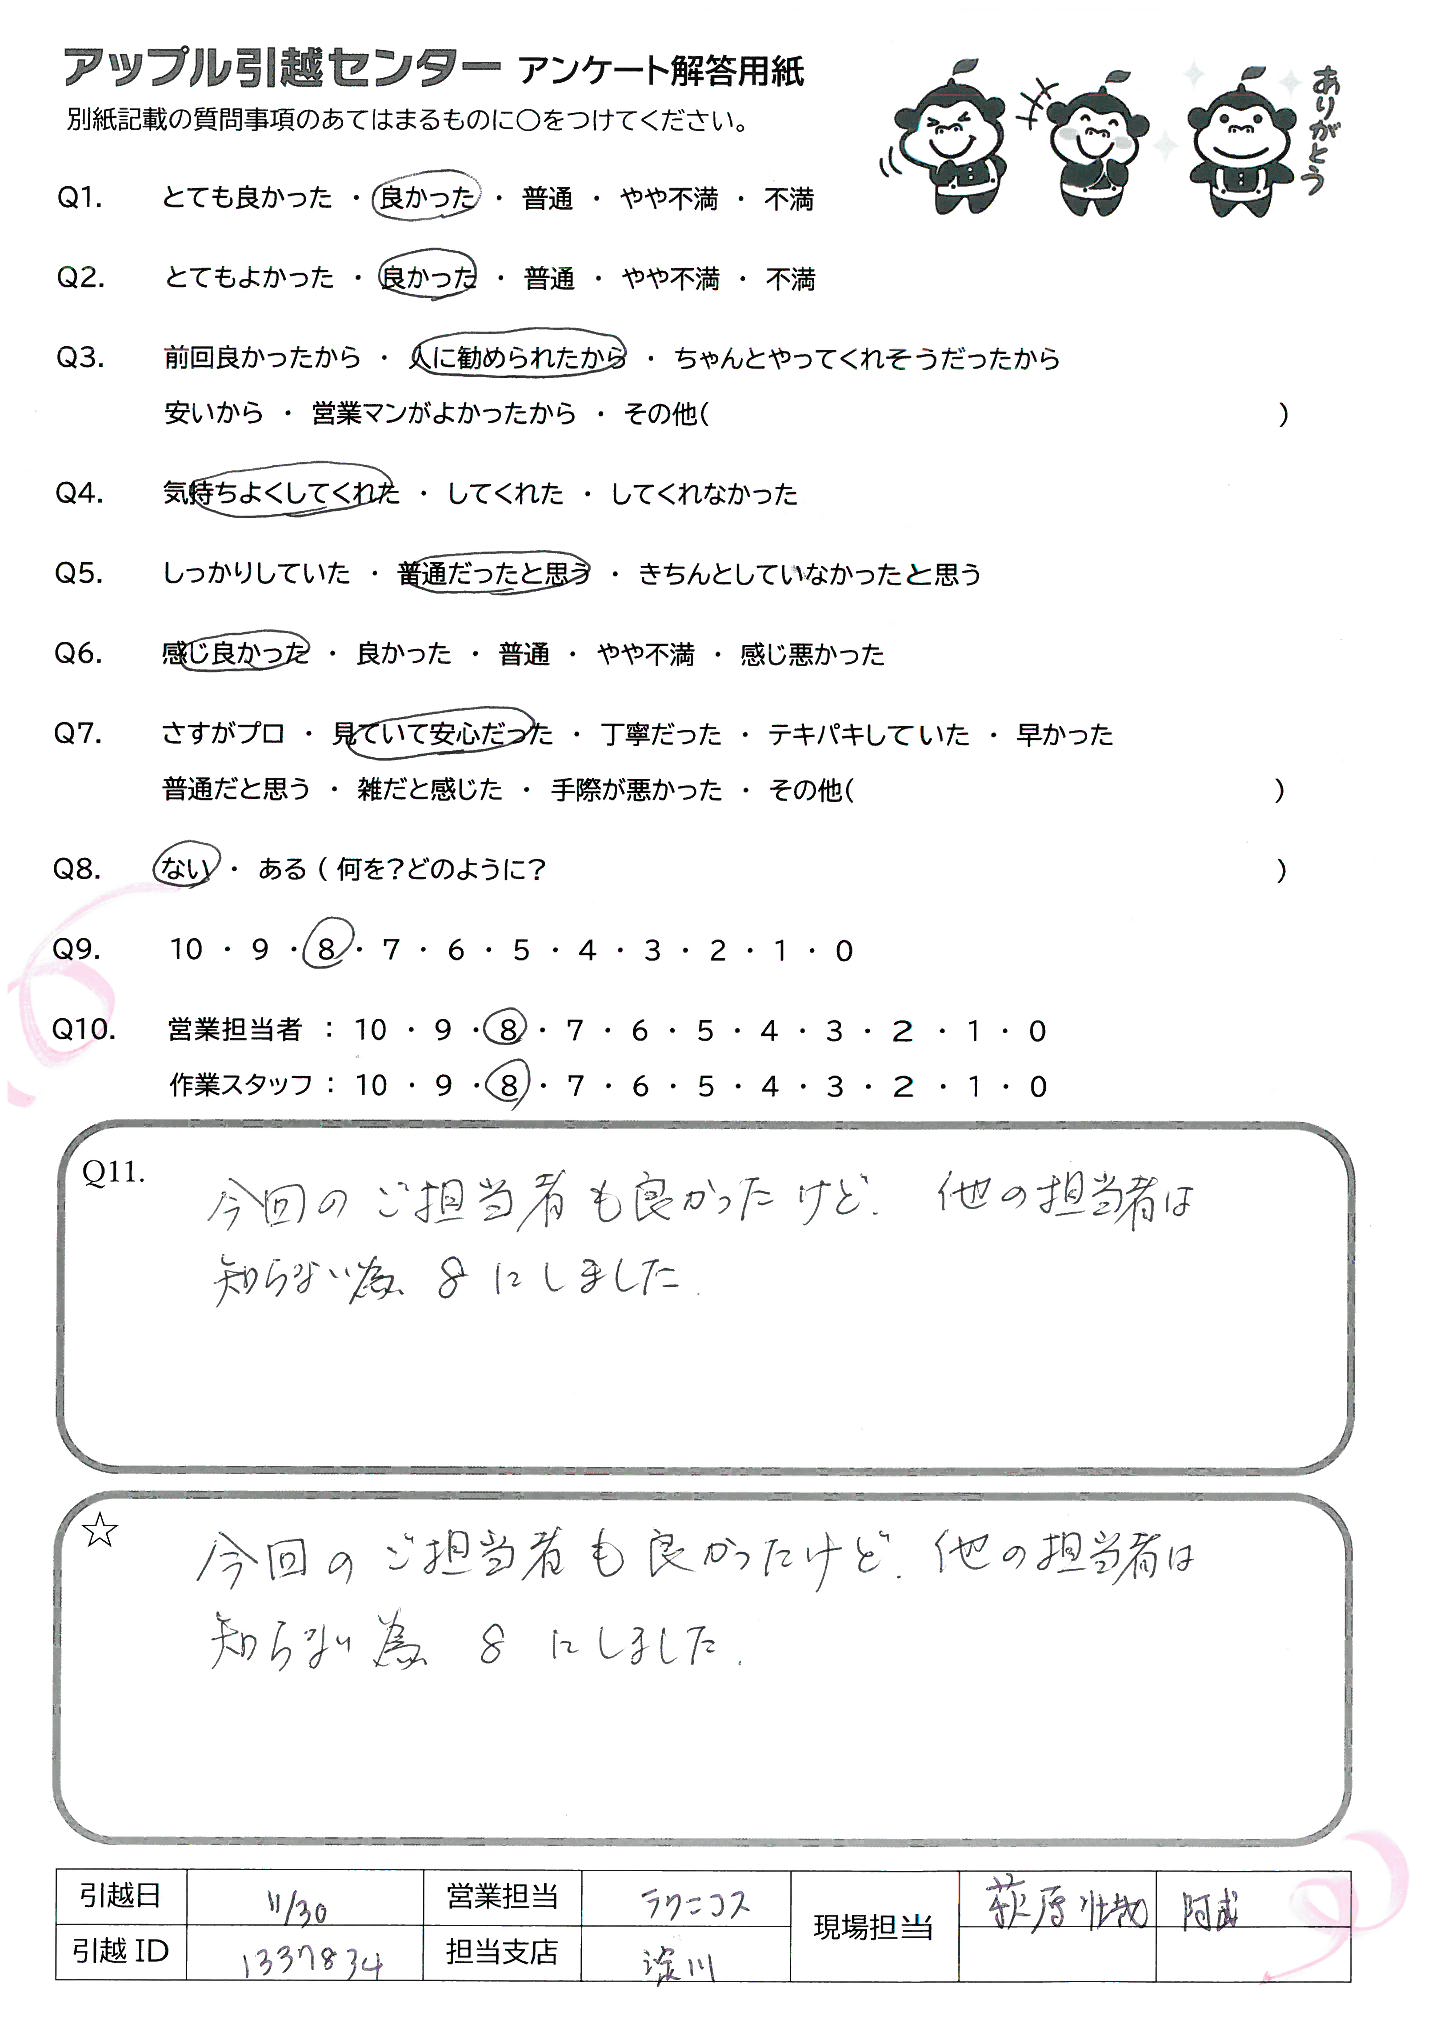 アップル引越センター アンケート解答用紙
別紙記載の質問事項のあてはまるものに○をつけてください。
ありがとう
Q1. とても良かった ・ 良かった ・ 普通 ・ やや不満 ・ 不満
Q2. とてもよかった ・ 良かった ・ 普通 ・ やや不満 ・ 不満
Q3. 前回良かったから ・ 人に勧められたから ・ ちゃんとやってくれそうだったから
安いから ・ 営業マンがよかったから ・ その他( )
Q4. 気持ちよくしてくれた ・ してくれた ・ してくれなかった
Q5. しっかりしていた ・ 普通だったと思う ・ きちんとしていなかったと思う
Q6. 感じ良かった ・ 良かった ・ 普通 ・ やや不満 ・ 感じ悪かった
Q7. さすがプロ ・ 見ていて安心だった ・ 丁寧だった ・ テキパキしていた ・ 早かった
普通だと思う ・ 雑だと感じた ・ 手際が悪かった ・ その他( )
Q8. ない ・ ある ( 何を?どのように? )
Q9. 10 ・ 9 ・ 8 ・ 7 ・ 6 ・ 5 ・ 4 ・ 3 ・ 2 ・ 1 ・ 0
Q10. 営業担当者 : 10 ・ 9 ・ 8 ・ 7 ・ 6 ・ 5 ・ 4 ・ 3 ・ 2 ・ 1 ・ 0
作業スタッフ : 10 ・ 9 ・ 8 ・ 7 ・ 6 ・ 5 ・ 4 ・ 3 ・ 2 ・ 1 ・ 0
Q11.
今回のご担当者も良かったけど、他の担当者は
知らない為 8 にしました.
☆
今回のご担当者も良かったけど、他の担当者は
知らない為 8 にしました.
引越日 11/30 営業担当 ラクニコス 現場担当 萩原壮哉 阿武
引越 ID 1337834 担当支店 淀川